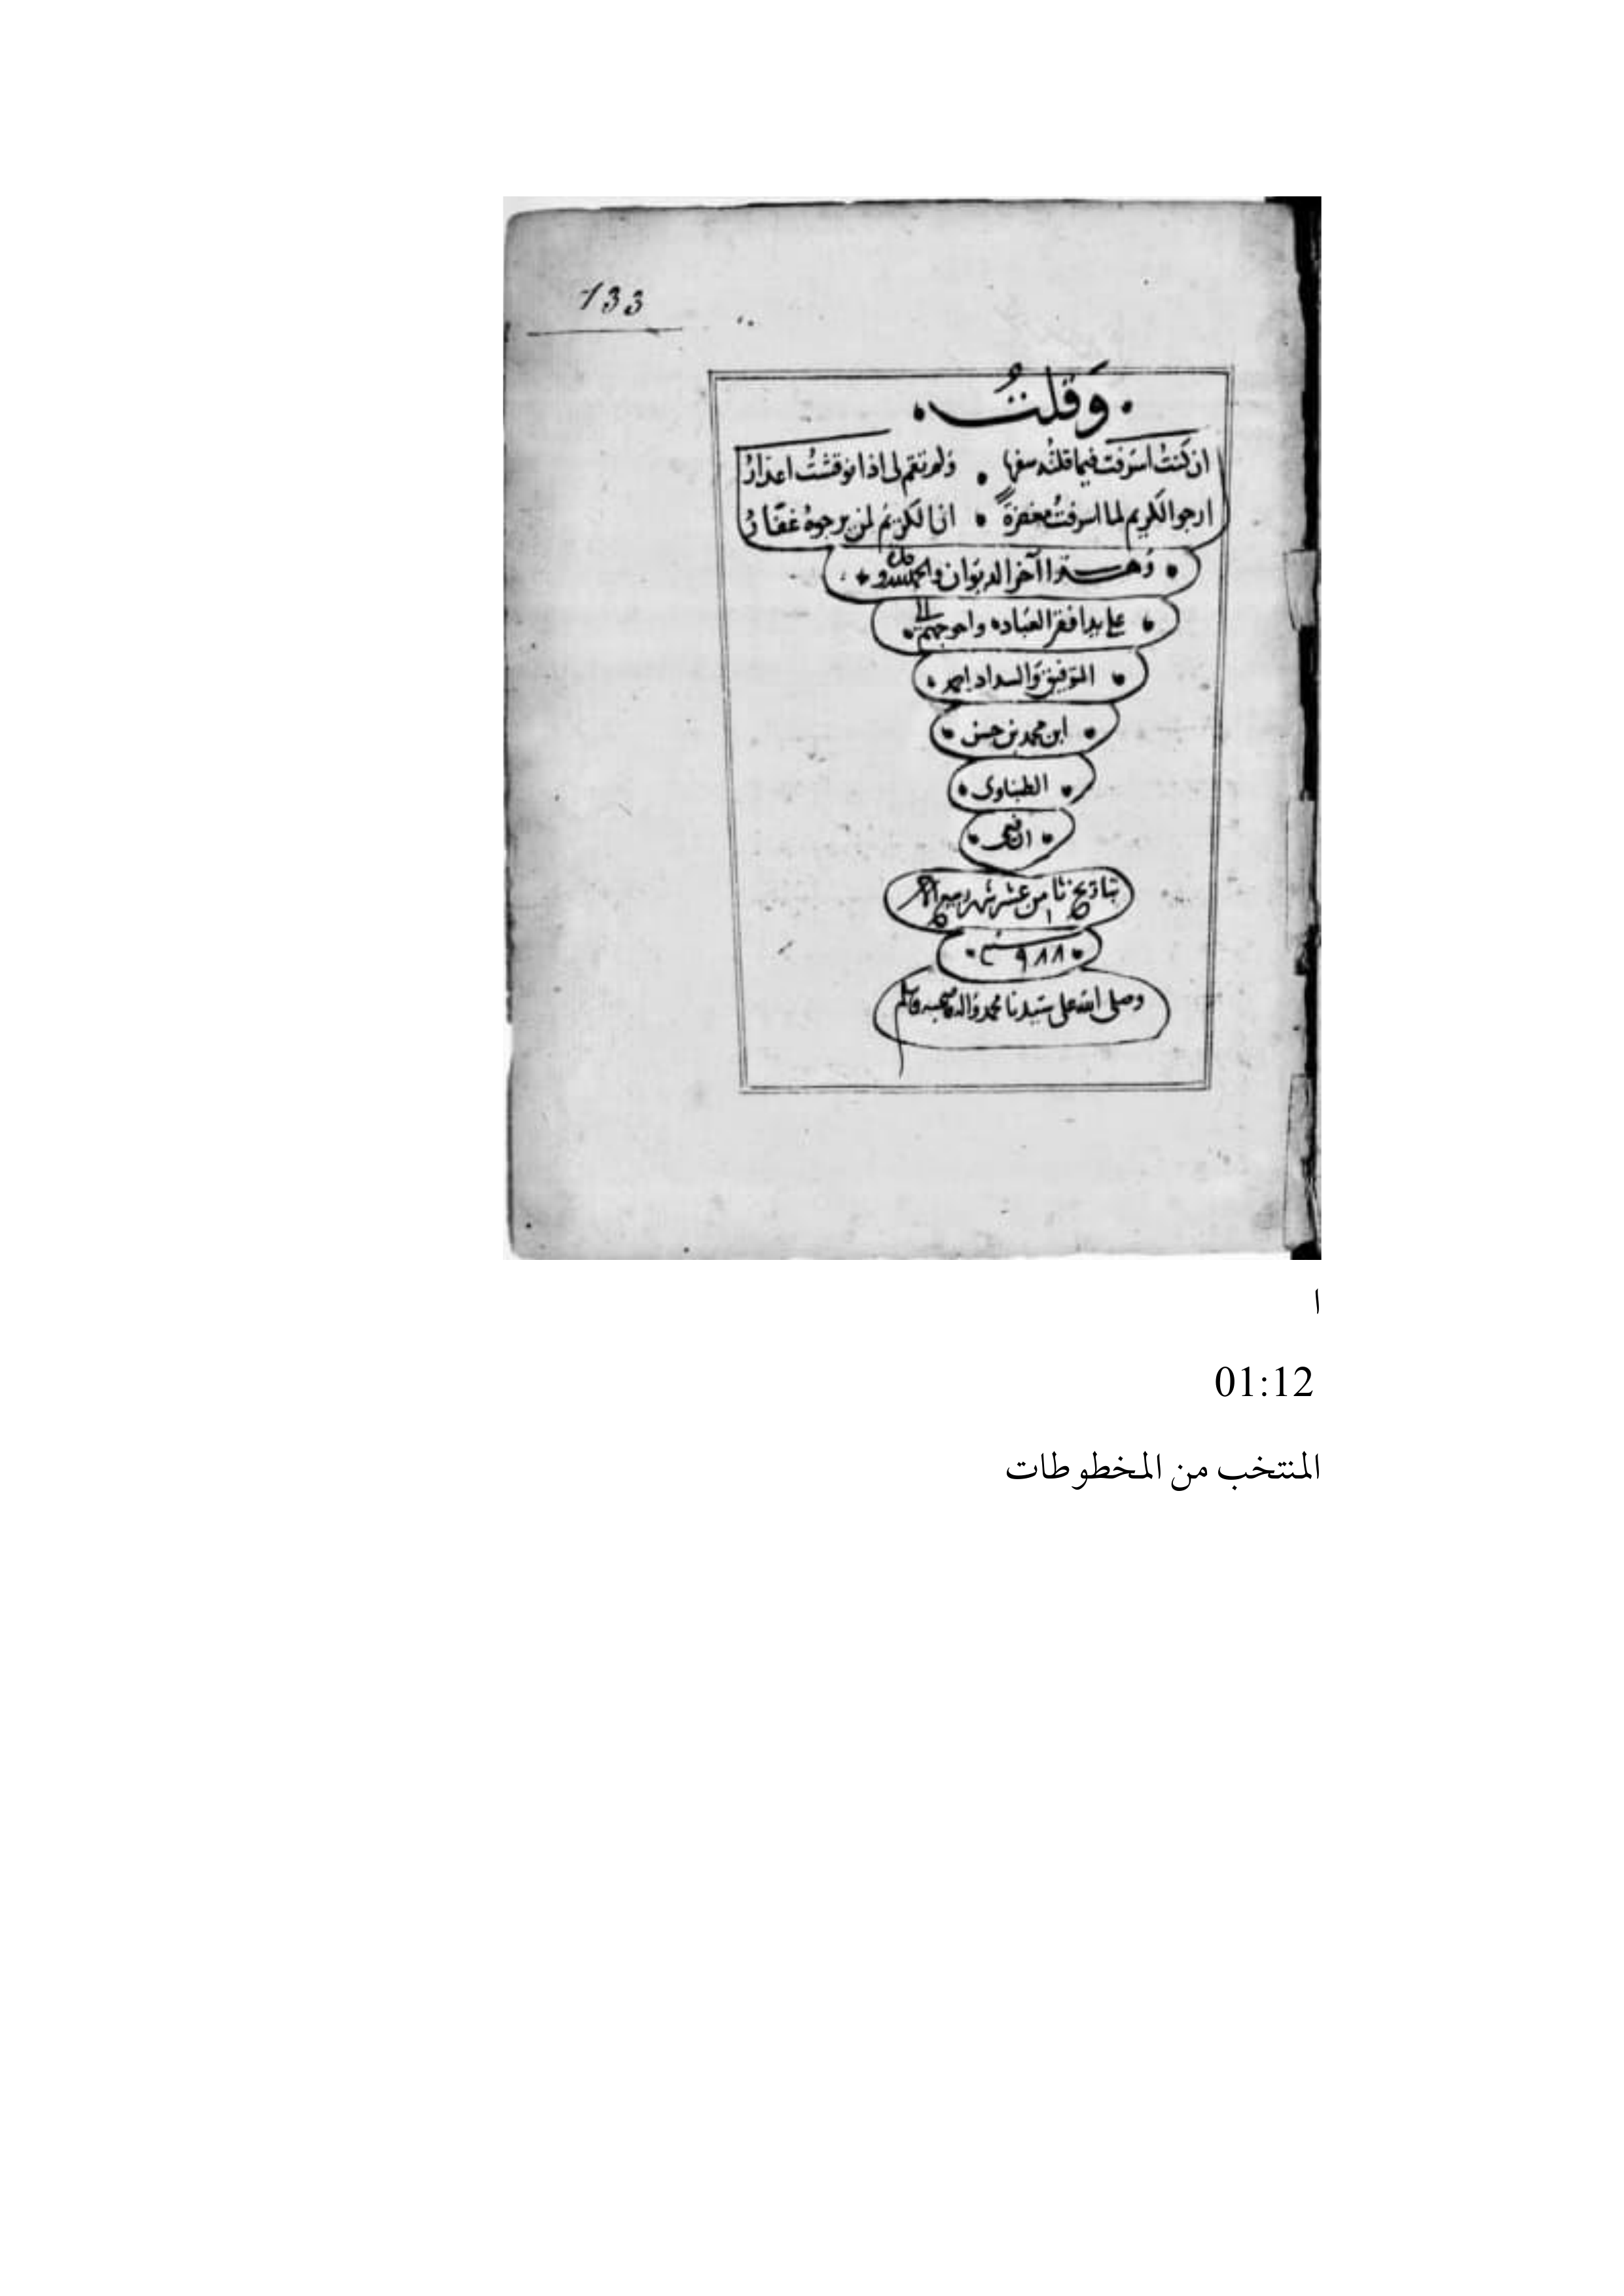 133
وَقلتُ
ان كنتُ اسرفت فيما قلته سفها ولم تقم لى اذا نوقشت اعذارُ
ارجو الكريم لما اسرفتُ مغفرةً ان الكريم لمن يرجوهُ غفّارُ
وهذا آخر الديوان والحمد لله وحده
على يد افقر العباد واحوجهم الى
التوفيق والسداد احمد
ابن محمد بن حسن
الطنباوى
بتاريخ ثامن عشر شهر ربيع الاخر
سنة ٩٨٨
وصلى الله على سيدنا محمد واله وصحبه وسلم
ا
01:12
المنتخب من المخطوطات